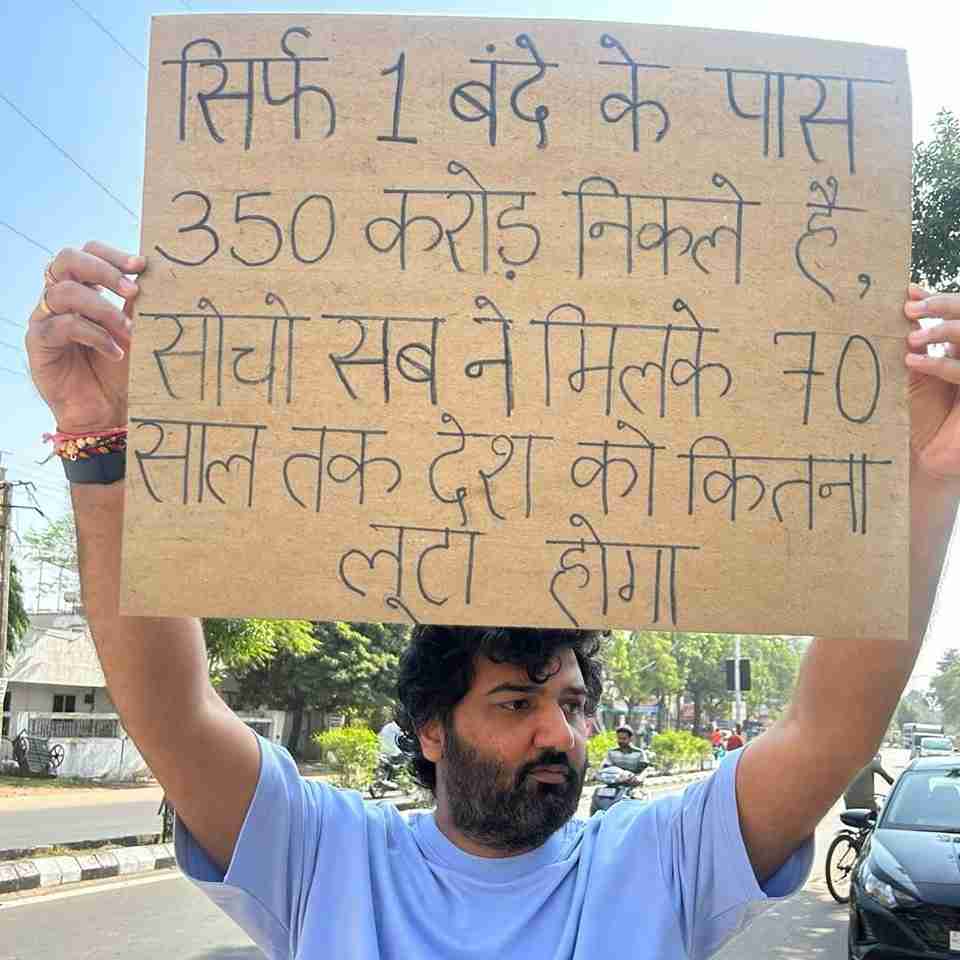 सिर्फ 1 बंदे के पास
350 करोड़ निकले हैं,
सोचो सब ने मिलके 70
साल तक देश को कितना
लूटा होगा